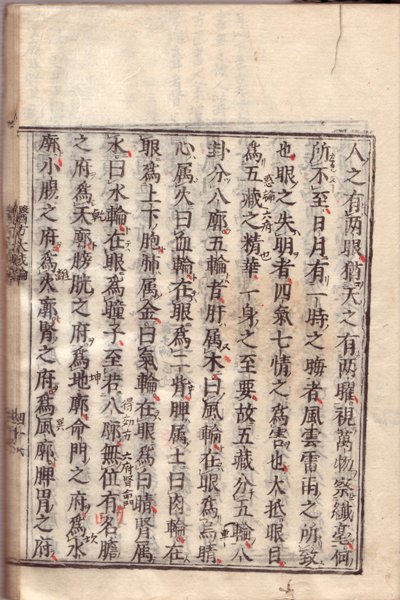 人之有两眼猶天之有两曜視萬物察纖毫何
所不至日月有一時之晦者風雲雷雨之所致
也眼之失明者四氣七情之為害也大抵眼目
為五藏之精華一身之至要故五藏分五輪八
卦分八廓五輪者肝属木曰風輪在眼為烏睛
心属火曰血輪在眼為二眥脾属土曰肉輪在
眼為上下胞肺属金曰氣輪在眼為白睛腎属
得効方
水曰水輪在眼為瞳子至若八廓無位有名膽
乾
坤
坎
之府為天廓膀胱之府為地廓命門之府為水
巽
廓小腸之府為火廓腎之府為風廓脾胃之府